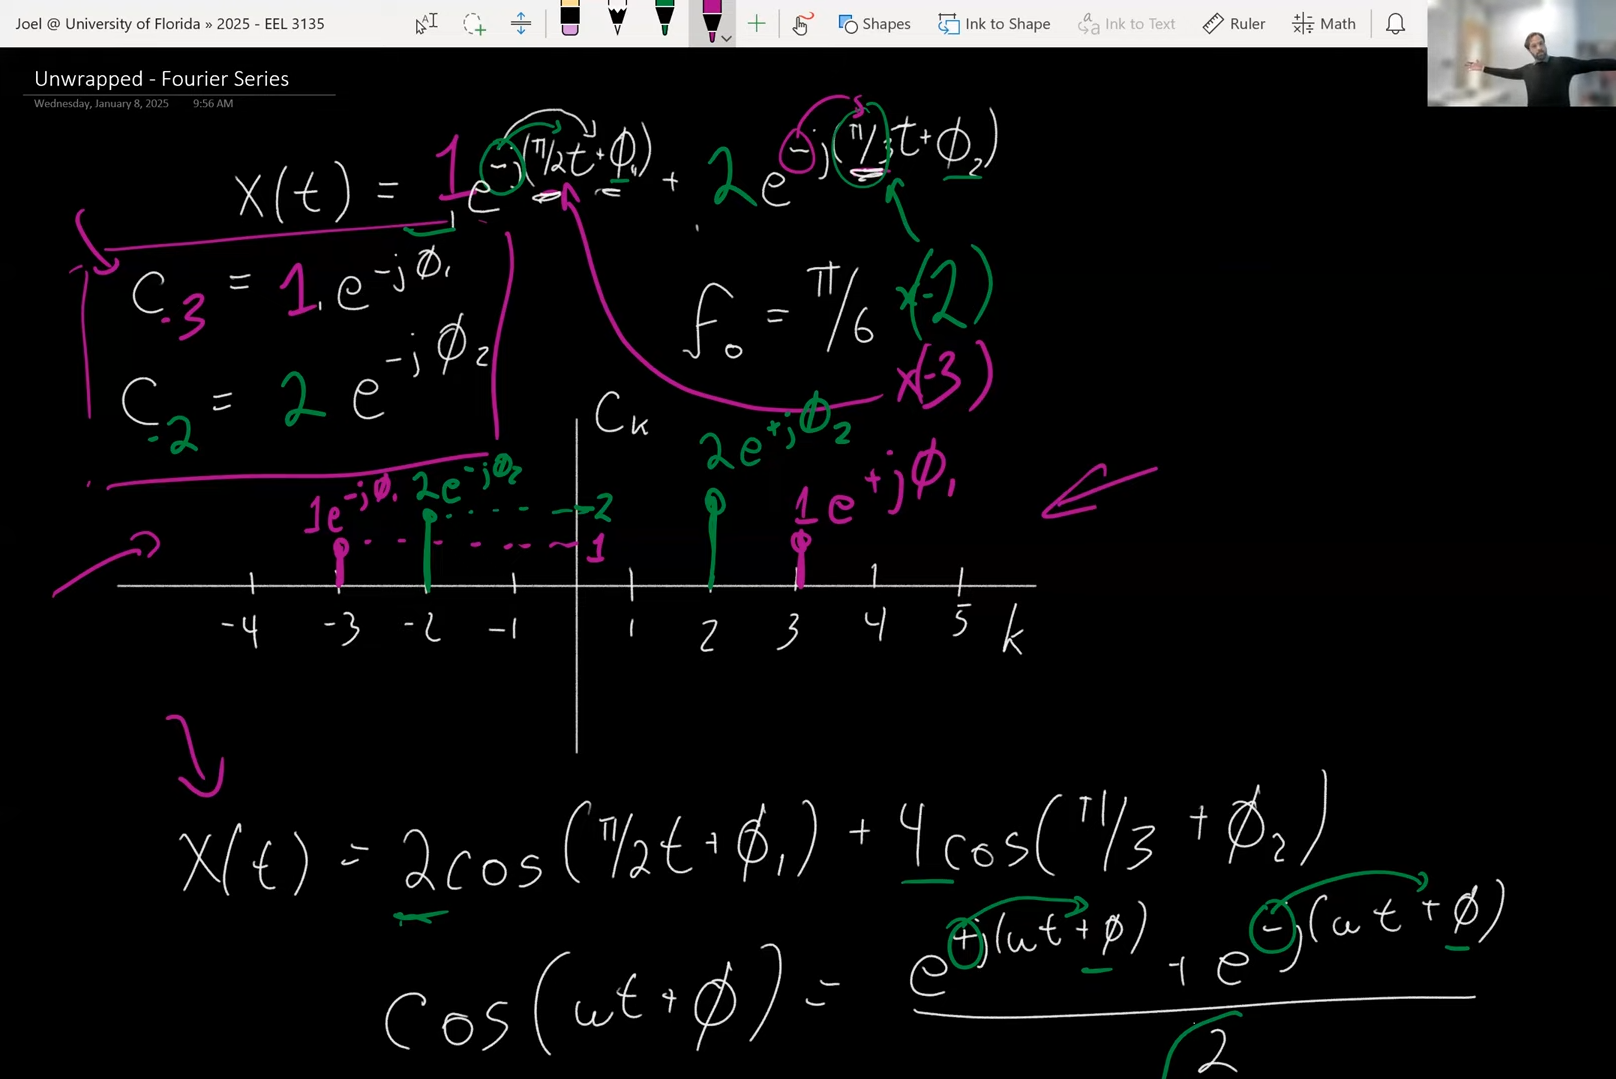 Joel @ University of Florida » 2025 - EEL 3135
Shapes
Ink to Shape
Ink to Text
Ruler
Math
Unwrapped - Fourier Series
Wednesday, January 8, 2025 9:56 AM
x(t) = 1 e^-j(π/2t+ϕ₁) + 2 e^-j(π/3t+ϕ₂)
C₋₃ = 1. e^-jϕ₁
f₀ = π/6 x(-2)
x(-3)
C₋₂ = 2 e^-jϕ₂
Cₖ
1e^-jϕ₁ 2e^-jϕ₂ 2
1
2e^+jϕ₂ 1e^+jϕ₁
-4 -3 -2 -1 1 2 3 4 5 k
x(t) = 2cos(π/2t+ϕ₁) + 4cos(π/3 + ϕ₂)
cos(ωt+ϕ) = e^+j(ωt+ϕ) + e^-j(ωt+ϕ)
2